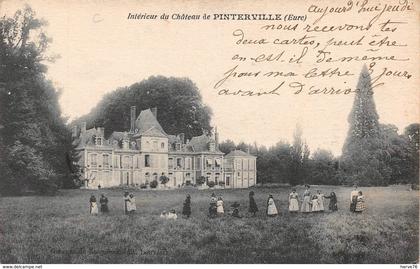 Intérieur du Château de PINTERVILLE (Eure)
Aujourd'hui jeudi
nous recevons tes
deux cartes, peut être
en est-il de même
pour ma lettre 3 jours
avant d'arriver
hervé76